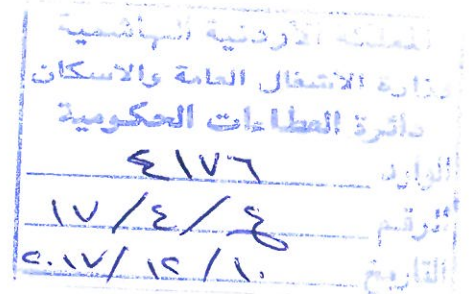 المملكة الأردنية الهاشمية
وزارة الاشغال العامة والاسكان
دائرة العطاءات الحكومية
الوارد ٤١٧٦
الرقم ١٧/٤/٤
التاريخ ٢٠١٧/١٢/١٠